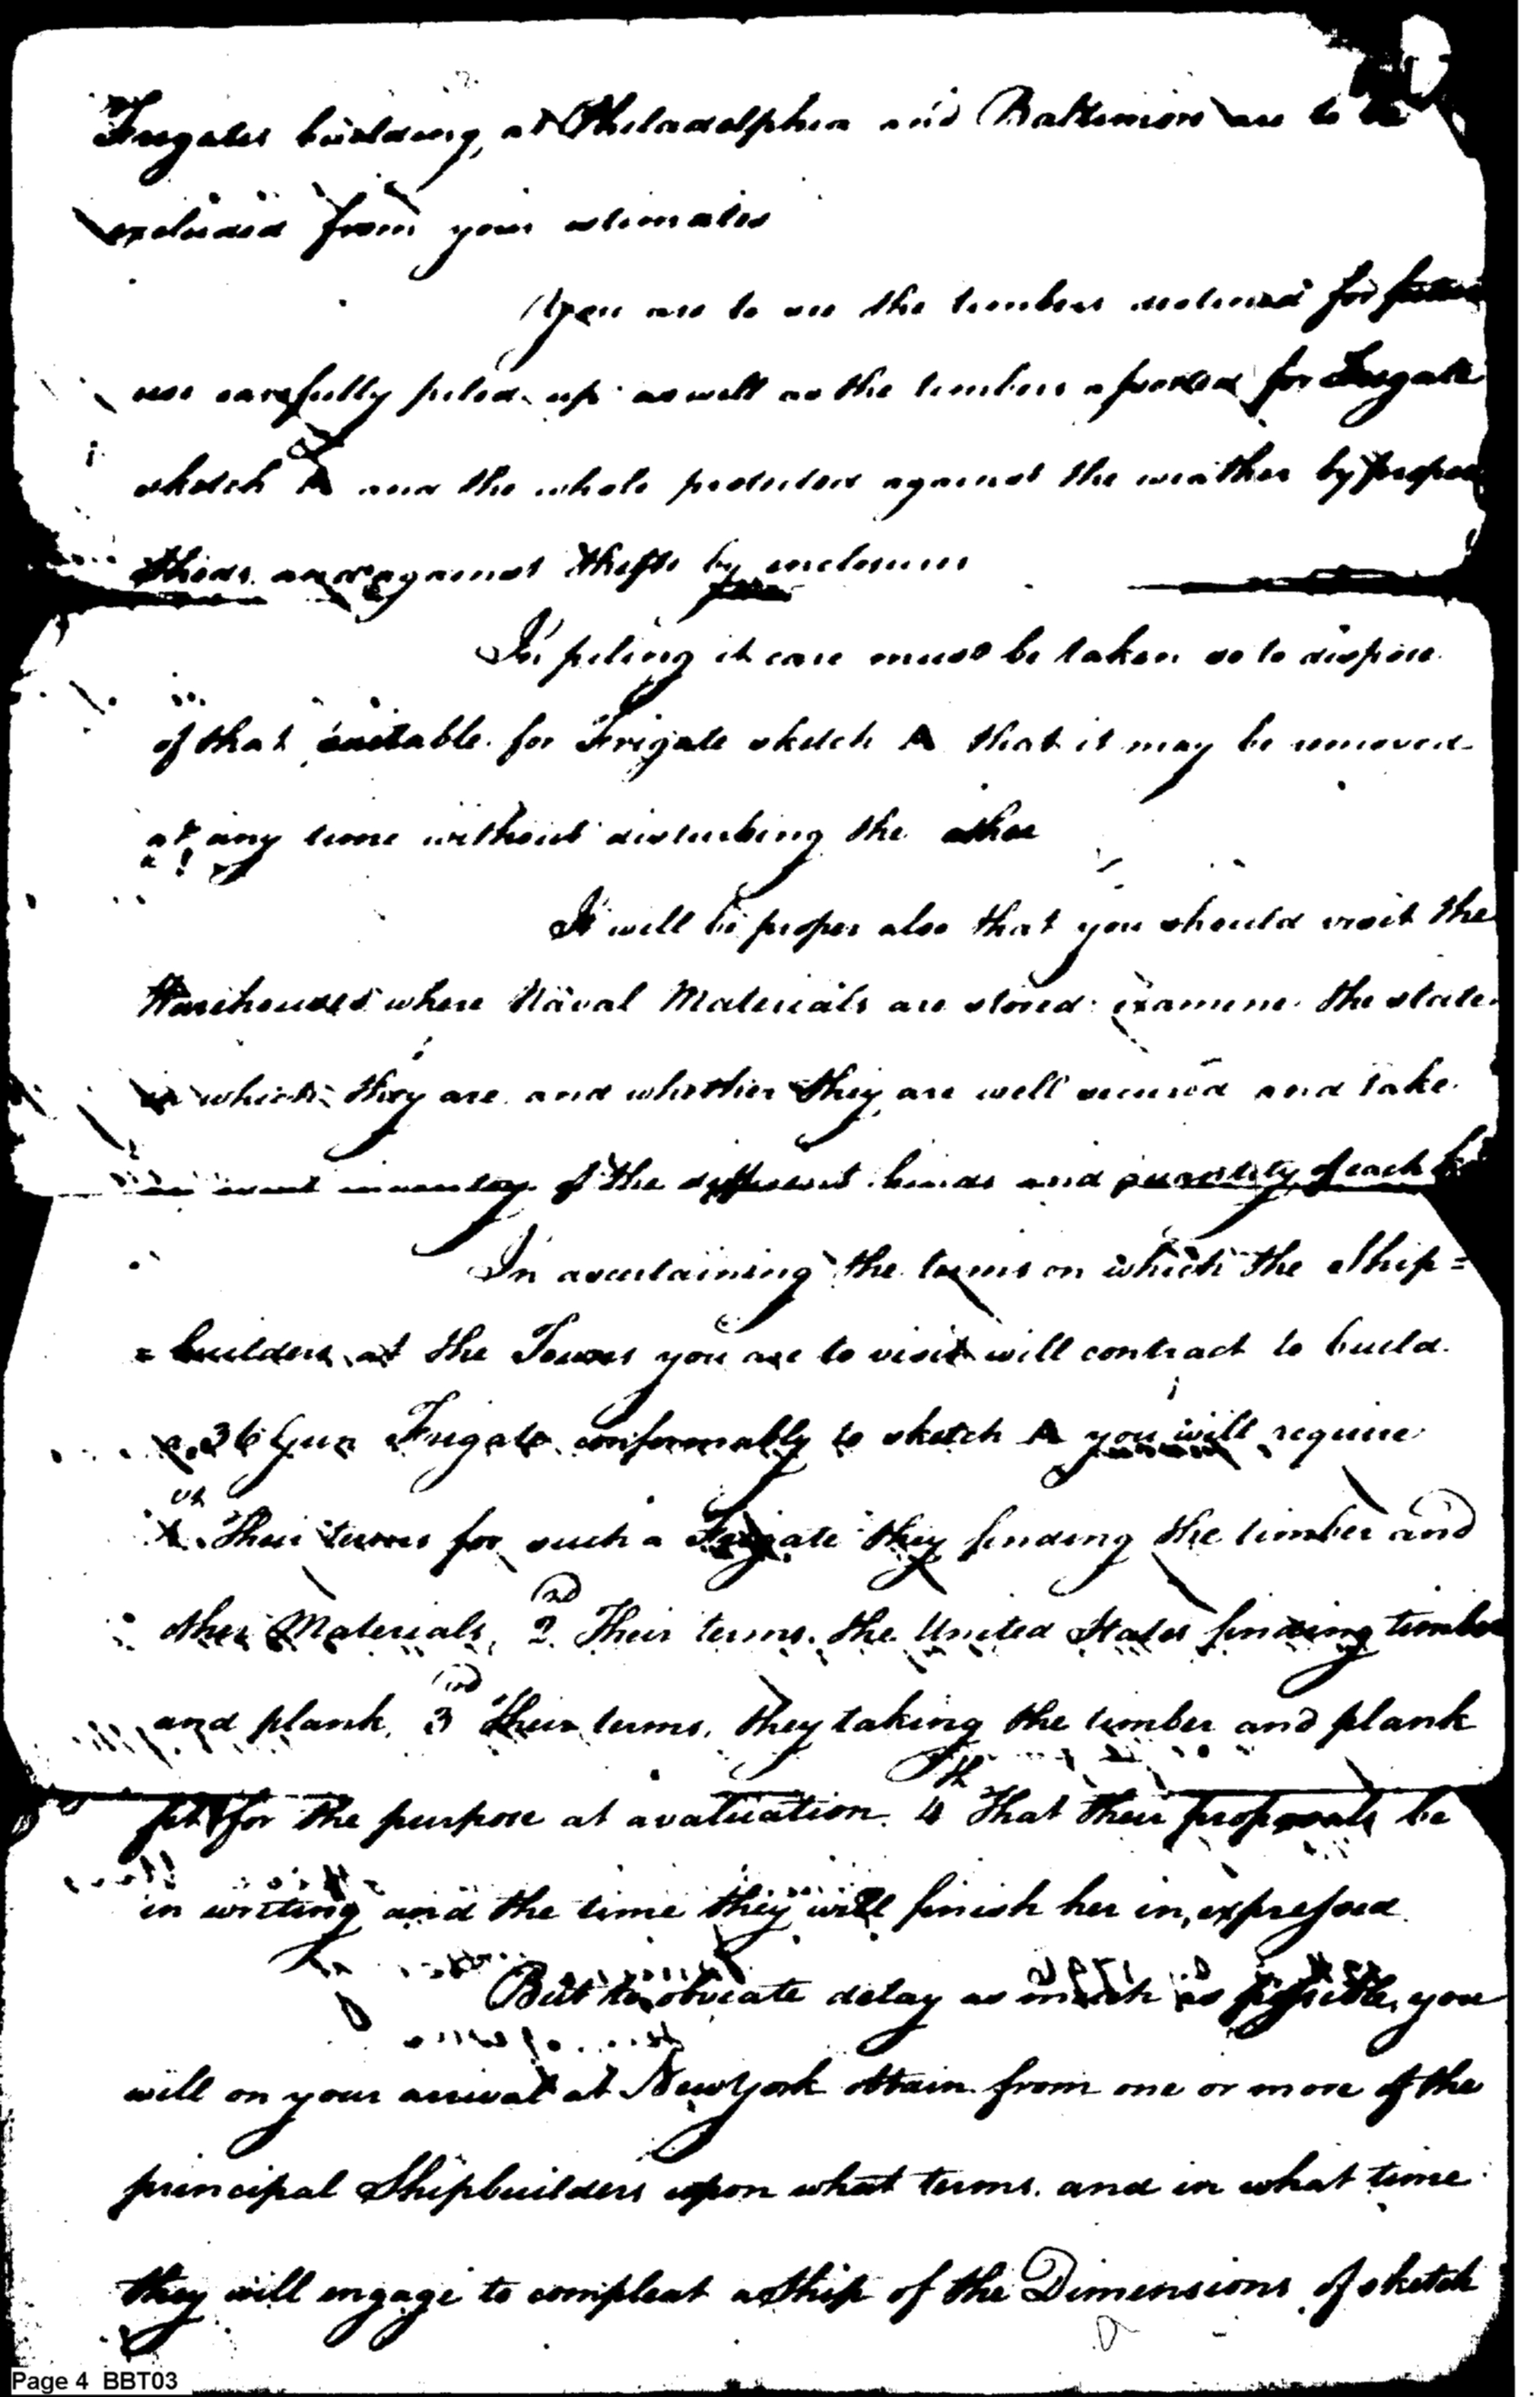 Frigates building, at Philadelphia and Baltimore are to be
excluded from your estimates
You are to see the timbers reserved for future
use carefully piled up as well as the timbers assorted for Frigate
sketch A and the whole protected against the weather by proper
sheds and against thefts by enclosures
In piling it care must be taken so to dispose
of that suitable for Frigate sketch A that it may be removed
at any time without disturbing the other
It will be proper also that you should visit the
Warehouses where Naval Materials are stored examine the state
in which they are and whether they are well secured and take
an exact inventory of the different kinds and quantity of each
In ascertaining the terms on which the Ship=
=builders at the Towns you are to visit will contract to build
a 36 Gun Frigate conformably to sketch A you will require
1st Their terms for such a Frigate they finding the timber and
other Materials, 2nd Their terms, the United States finding timber
and plank, 3rd Their terms, they taking the timber and plank
fit for the purpose at a valuation. 4th That their proposals be
in writing and the time they will finish her in, expressed
But to obviate delay as much as possible, you
will on your arrival at New York obtain from one or more of the
principal Shipbuilders upon what terms, and in what time
they will engage to compleat a Ship of the Dimensions of sketch
Page 4 BBT03